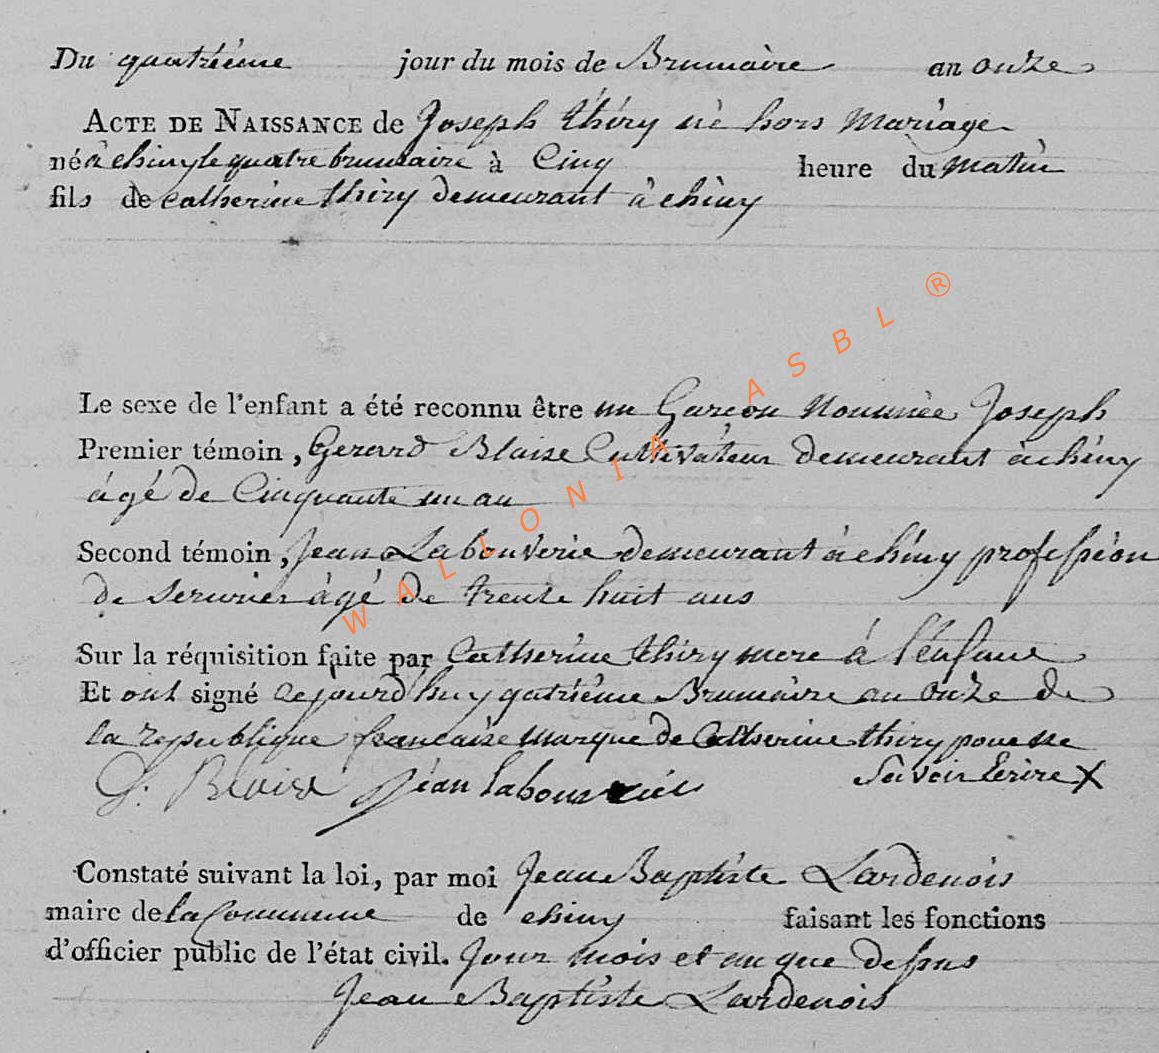 Du quatriéme jour du mois de Brumaire an onze
ACTE DE NAISSANCE de Joseph thiry né hors Mariage
né à chiny le quatre brumaire à Cinq heure du matin
fils de catherine thiry demeurant à chiny
Le sexe de l'enfant a été reconnu être un Garcon Nommée Joseph
Premier témoin, Gerard Blaise Cultivateur demeurant à chiny
ágé de Cinquante un an
Second témoin, Jean Labouverie demeurant à chiny profession
de serurier ágé de trente huit ans
Sur la réquisition faite par Catherine thiry mere á l'enfant
Et ont signé cejourd'huy qatriéme Brumaire an onze de
la republique francaise marque de Catherine thiry pour ne
Savoir Ecrire X
G. Blaise jéan labouverie
Constaté suivant la loi, par moi Jean Baptiste Lardenois
maire de la Commune de chiny faisant les fonctions
d'officier public de l'état civil. Jour mois et an que dessus
Jean Baptiste Lardenois
WALLONIA ASBL ®